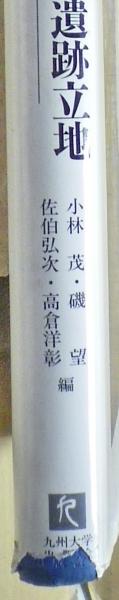 遺跡立地
小林 茂・磯 望
佐伯弘次・高倉洋彰
編
九州大学